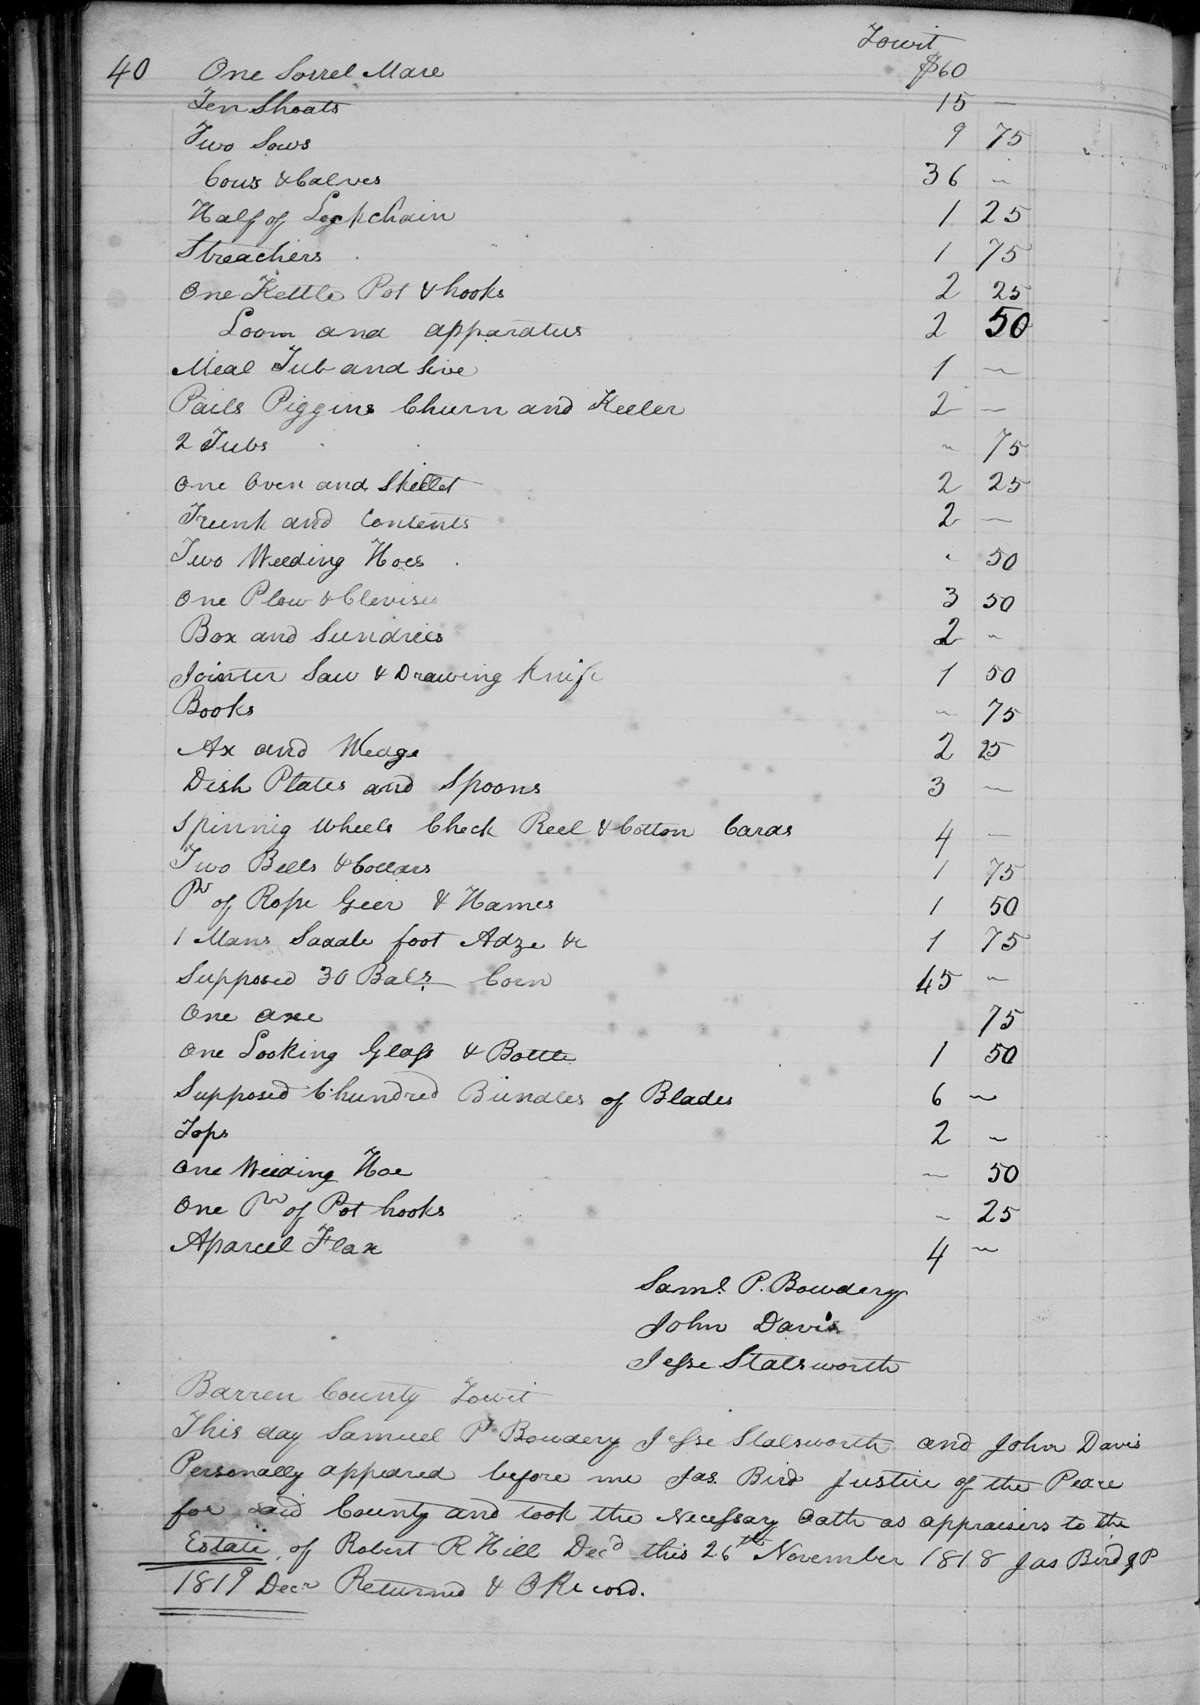 Towit
40 One Sorrel Mare $60
Ten Shoats 15 —
Two Sows 9 75
Cows & Calves 36 ~
Half of Lockchain 1 25
Streachers 1 75
One Kettle Pot & hooks 2 25
Loom and apparatus 2 50
Meal Tub and Sive 1 —
Pails Piggins Churn and Keeler 2 —
2 Tubs ~ 75
One Oven and Skillet 2 25
Trunk and Contents 2 —
Two Weeding Hoes . 50
One Plow & Clevises 3 50
Box and Sundries 2 ~
Jointer Saw & Drawing Knife 1 50
Books ~ 75
Ax and Wedge 2 25
Dish Plates and Spoons 3 —
Spinnig Wheels Check Reel & Cotton Cards 4 —
Two Bells & Collars 1 75
Pr of Rope Geer & Hames 1 50
1 Mans Saddle foot Adze &c 1 75
Supposed 30 Bals Corn 45 ~
One axe 75
One Looking Glass & Bottle 1 50
Supposed 6 hundred Bundles of Blades 6 ~
Tops 2 ~
One Weeding Hoe — 50
One Pr of Pot hooks ~ 25
Aparcel Flax 4 ~
Saml. P. Bowdery
John Davis
Jesse Stalsworth
Barren County Towit
This day Samuel P Bowdery Jesse Stalsworth and John Davis
Personally appeared before me Jas. Bird Justice of the Peace
for said County and took the Necessary Oath as appraisers to the
Estate of Robert R Hill Decd this 26th November 1818 Jas Bird JP
1819 Decr Returned & ORecord.